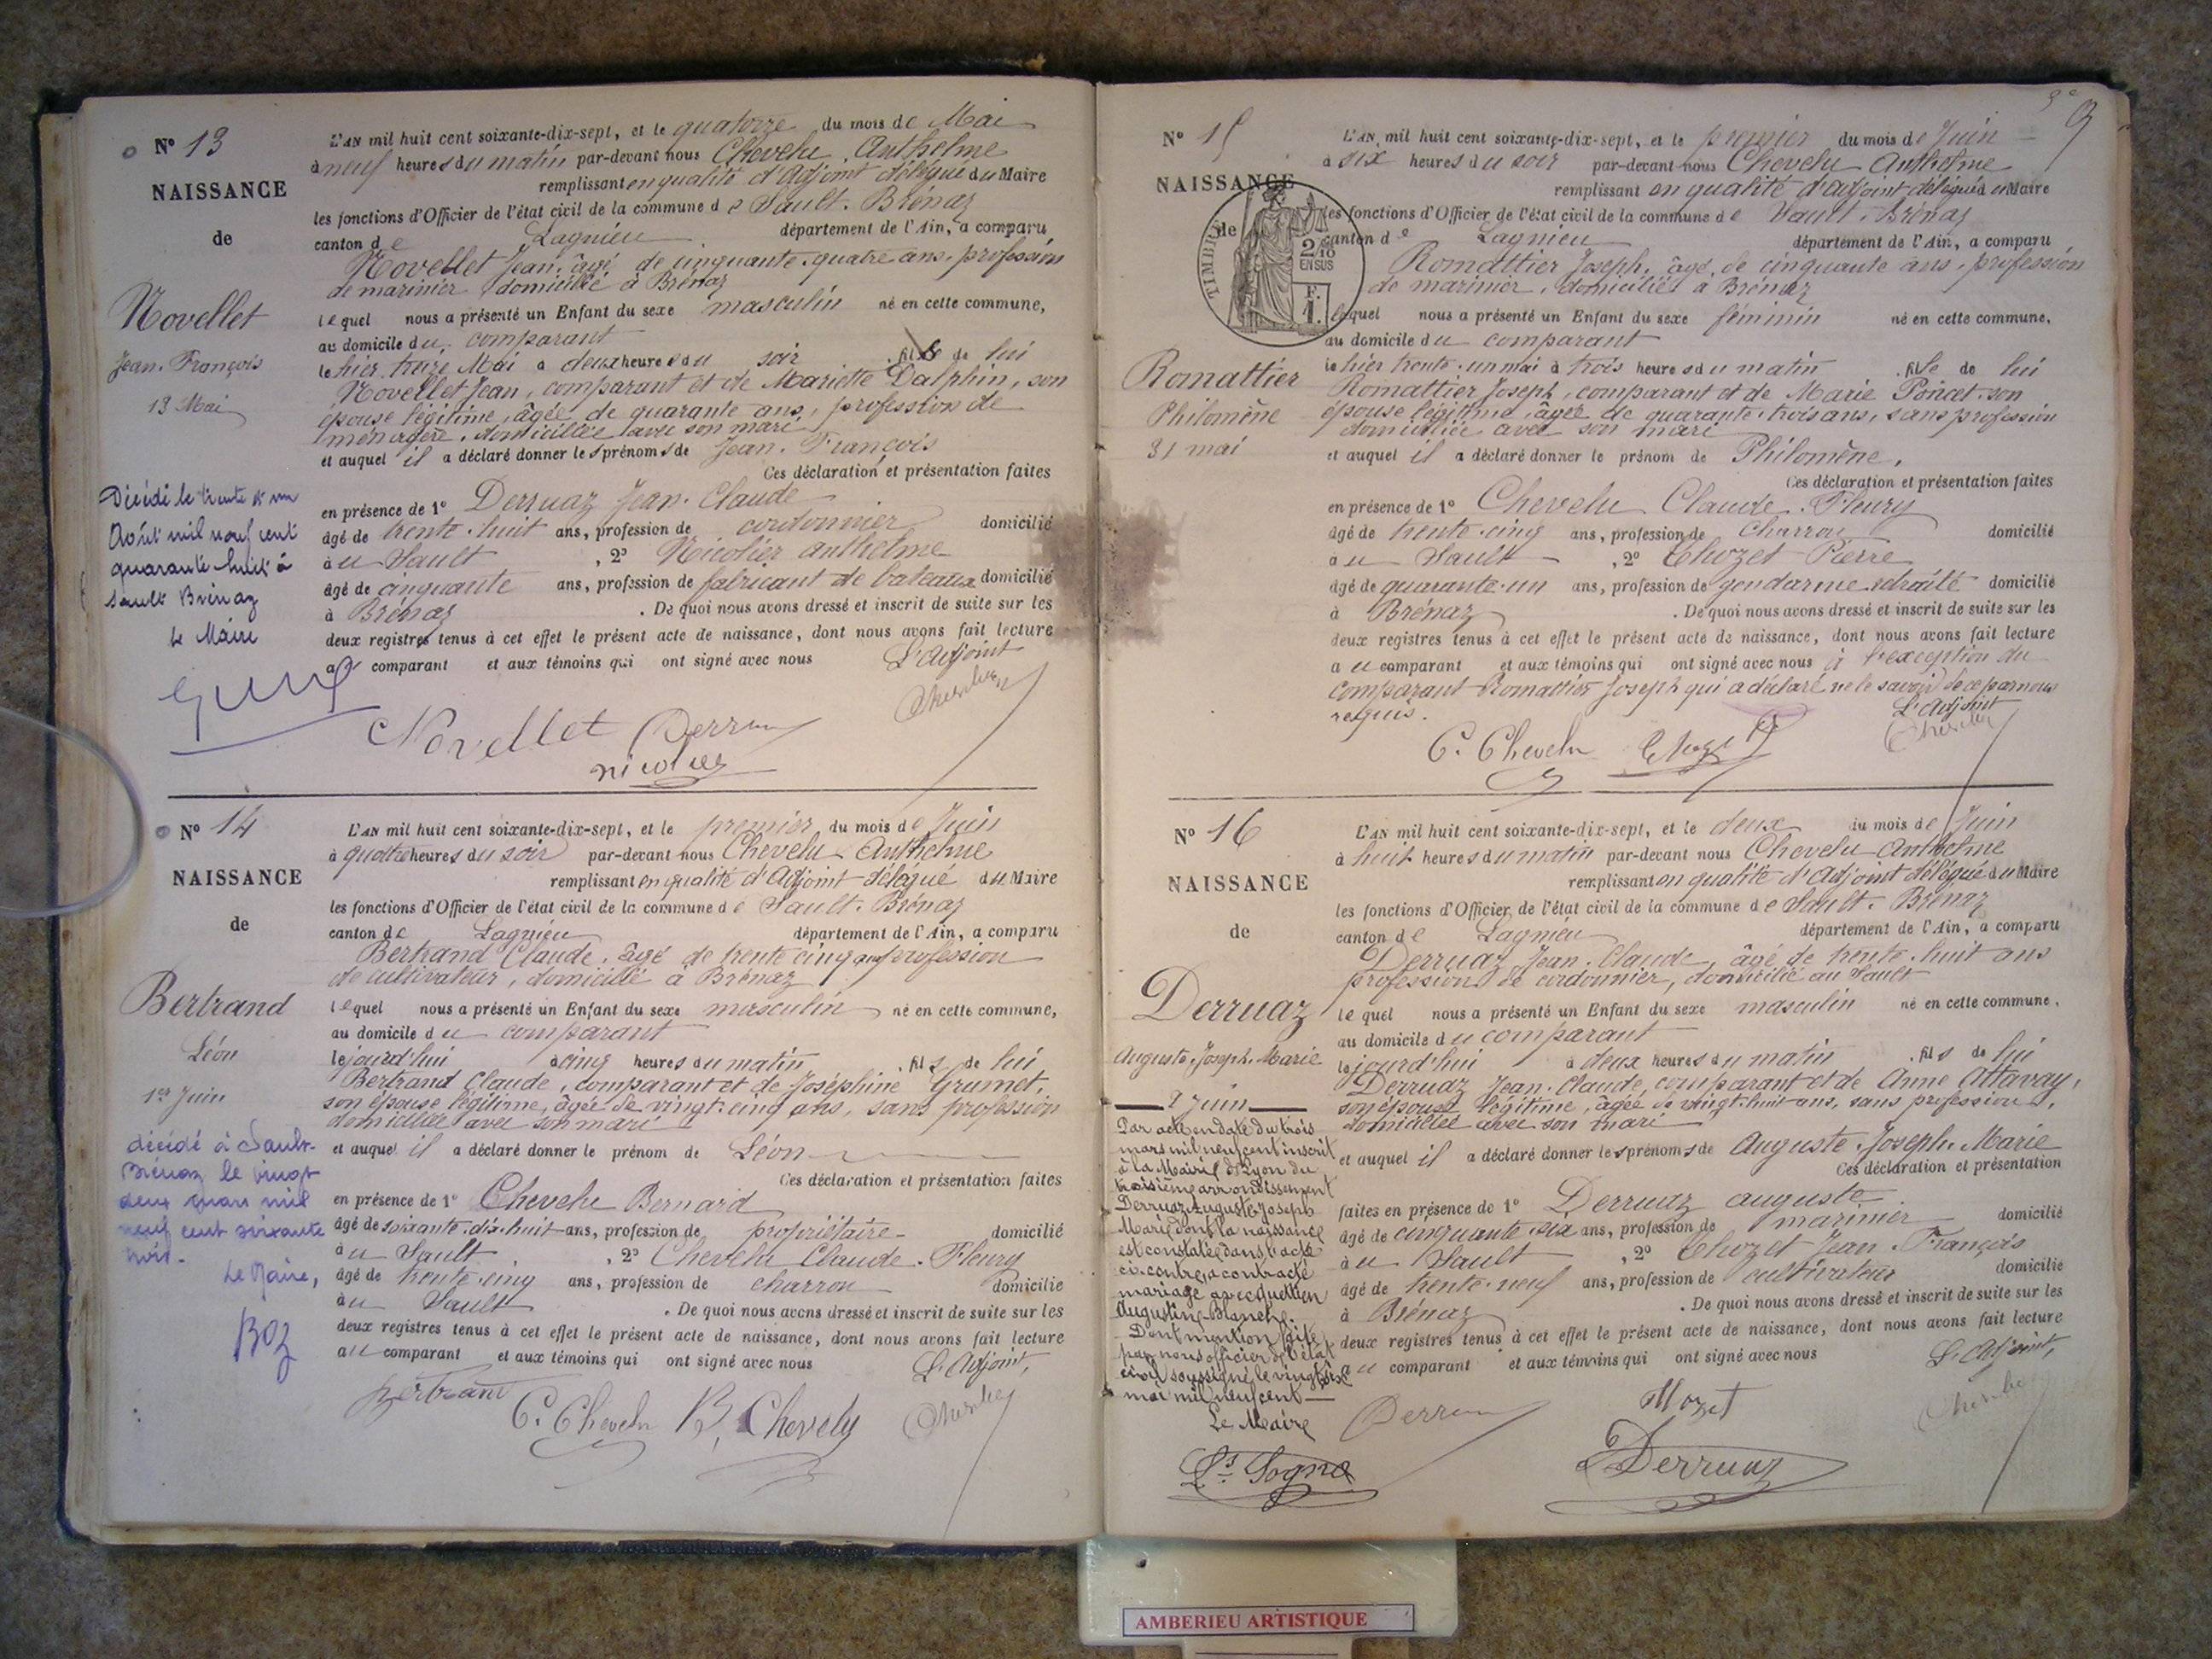 Nº 13
NAISSANCE
de
Novellet
Jean-François
13 Mai
Décédé le trente et un
Août mil neuf cent
quarante huit à
Sault Brénaz
Le Maire
L'AN mil huit cent soixante-dix-sept, et le quatorze du mois de Mai
à neuf heures du matin par-devant nous Chevelu Anthelme
remplissant en qualité d'Adjoint délégué du Maire
les fonctions d'Officier de l'état civil de la commune de Sault-Brénaz
canton de Lagnieu département de l'Ain, a comparu
Novellet Jean, âgé de cinquante-quatre ans, profession
de marinier domicilié à Brénaz
lequel nous a présenté un Enfant du sexe masculin né en cette commune,
au domicile du comparant
le hier treize Mai à deux heures du soir, fils de lui
Novellet Jean, comparant et de Mariette Dalphin, son
épouse légitime, âgée de quarante ans, profession de
ménagère, domiciliée avec son mari
et auquel il a déclaré donner les prénoms de Jean-François
Ces déclaration et présentation faites
en présence de 1º Derruaz Jean-Claude
âgé de trente-huit ans, profession de cordonnier domicilié
au Sault, 2º Nicolier Anthelme
âgé de cinquante ans, profession de fabricant de bateaux domicilié
à Brénaz. De quoi nous avons dressé et inscrit de suite sur les
deux registres tenus à cet effet le présent acte de naissance, dont nous avons fait lecture
au comparant et aux témoins qui ont signé avec nous L'Adjoint
Novellet Derruaz Chevelu
Nicolier
Nº 14
NAISSANCE
de
Bertrand
Léon
1er Juin
décédé à Sault-
Brénaz le vingt
deux mars mil
neuf cent soixante
trois.
Le Maire,
BOZ
L'AN mil huit cent soixante-dix-sept, et le premier du mois de Juin
à quatre heures du soir par-devant nous Chevelu Anthelme
remplissant en qualité d'Adjoint délégué du Maire
les fonctions d'Officier de l'état civil de la commune de Sault-Brénaz
canton de Lagnieu département de l'Ain, a comparu
Bertrand Claude, âgé de trente cinq ans profession
de cultivateur, domicilié à Brénaz
lequel nous a présenté un Enfant du sexe masculin né en cette commune,
au domicile du comparant
le jourd'hui à cinq heures du matin, fils de lui
Bertrand Claude, comparant et de Joséphine Grumet,
son épouse légitime, âgée de vingt-cinq ans, sans profession
domiciliée avec son mari
et auquel il a déclaré donner le prénom de Léon
Ces déclaration et présentation faites
en présence de 1º Chevelu Bernard
âgé de soixante-dix-huit ans, profession de propriétaire domicilié
au Sault, 2º Chevelu Claude-Fleury
âgé de trente-cinq ans, profession de charron domicilié
au Sault. De quoi nous avons dressé et inscrit de suite sur les
deux registres tenus à cet effet le présent acte de naissance, dont nous avons fait lecture
au comparant et aux témoins qui ont signé avec nous L'Adjoint,
Bertrand C. Chevelu B. Chevelu Chevelu
9
Nº 15
NAISSANCE
de
TIMBRE
2/10
EN SUS
F.
1.
Romattier
Philomène
31 mai
L'AN mil huit cent soixante-dix-sept, et le premier du mois de Juin
à six heures du soir par-devant nous Chevelu Anthelme
remplissant en qualité d'adjoint délégué du Maire
les fonctions d'Officier de l'état civil de la commune de Sault-Brénaz
canton de Lagnieu département de l'Ain, a comparu
Romattier Joseph, âgé de cinquante ans, profession
de marinier, domicilié à Brénaz
lequel nous a présenté un Enfant du sexe féminin né en cette commune,
au domicile du comparant
le hier trente-un mai à trois heures du matin, fille de lui
Romattier Joseph, comparant et de Marie Poncet son
épouse légitime, âgée de quarante-trois ans, sans profession
domiciliée avec son mari
et auquel il a déclaré donner le prénom de Philomène.
Ces déclaration et présentation faites
en présence de 1º Chevelu Claude-Fleury
âgé de trente-cinq ans, profession de charron domicilié
au Sault, 2º Chozet Pierre
âgé de quarante-un ans, profession de gendarme retraité domicilié
à Brénaz. De quoi nous avons dressé et inscrit de suite sur les
deux registres tenus à cet effet le présent acte de naissance, dont nous avons fait lecture
au comparant et aux témoins qui ont signé avec nous à l'exception du
comparant Romattier Joseph qui a déclaré ne le savoir de ce par nous
requis. L'Adjoint
C. Chevelu Chozet P Chevelu
Nº 16
NAISSANCE
de
Derruaz
Auguste-Joseph-Marie
2 juin
Par acte en date du trois
mars mil neuf cent inscrit
à la Mairie de Lyon du
troisième arrondissement
Derruaz Auguste Joseph
Marie dont la naissance
est constatée dans l'acte
ci-contre, a contracté
mariage avec
Augustine Blanche.
Dont mention faite
par nous officier de l'état
civil soussigné le vingt six
mai mil neuf cent
Le Maire
L'AN mil huit cent soixante-dix-sept, et le deux du mois de Juin
à huit heures du matin par-devant nous Chevelu Anthelme
remplissant en qualité d'Adjoint délégué du Maire
les fonctions d'Officier de l'état civil de la commune de Sault-Brénaz
canton de Lagnieu département de l'Ain, a comparu
Derruaz Jean-Claude, âgé de trente-huit ans
profession de cordonnier, domicilié au Sault
lequel nous a présenté un Enfant du sexe masculin né en cette commune,
au domicile du comparant
le jourd'hui à deux heures du matin, fils de lui
Derruaz Jean-Claude, comparant et de Anne Attavay,
son épouse légitime, âgée de vingt-huit ans, sans profession,
domiciliée avec son mari
et auquel il a déclaré donner les prénoms de Auguste-Joseph-Marie
Ces déclaration et présentation
faites en présence de 1º Derruaz Auguste
âgé de cinquante-six ans, profession de marinier domicilié
au Sault, 2º Chozet Jean-François
âgé de trente-neuf ans, profession de cultivateur domicilié
à Brénaz. De quoi nous avons dressé et inscrit de suite sur les
deux registres tenus à cet effet le présent acte de naissance, dont nous avons fait lecture
au comparant et aux témoins qui ont signé avec nous L'Adjoint,
Derruaz Chevelu
Derruaz
AMBERIEU ARTISTIQUE